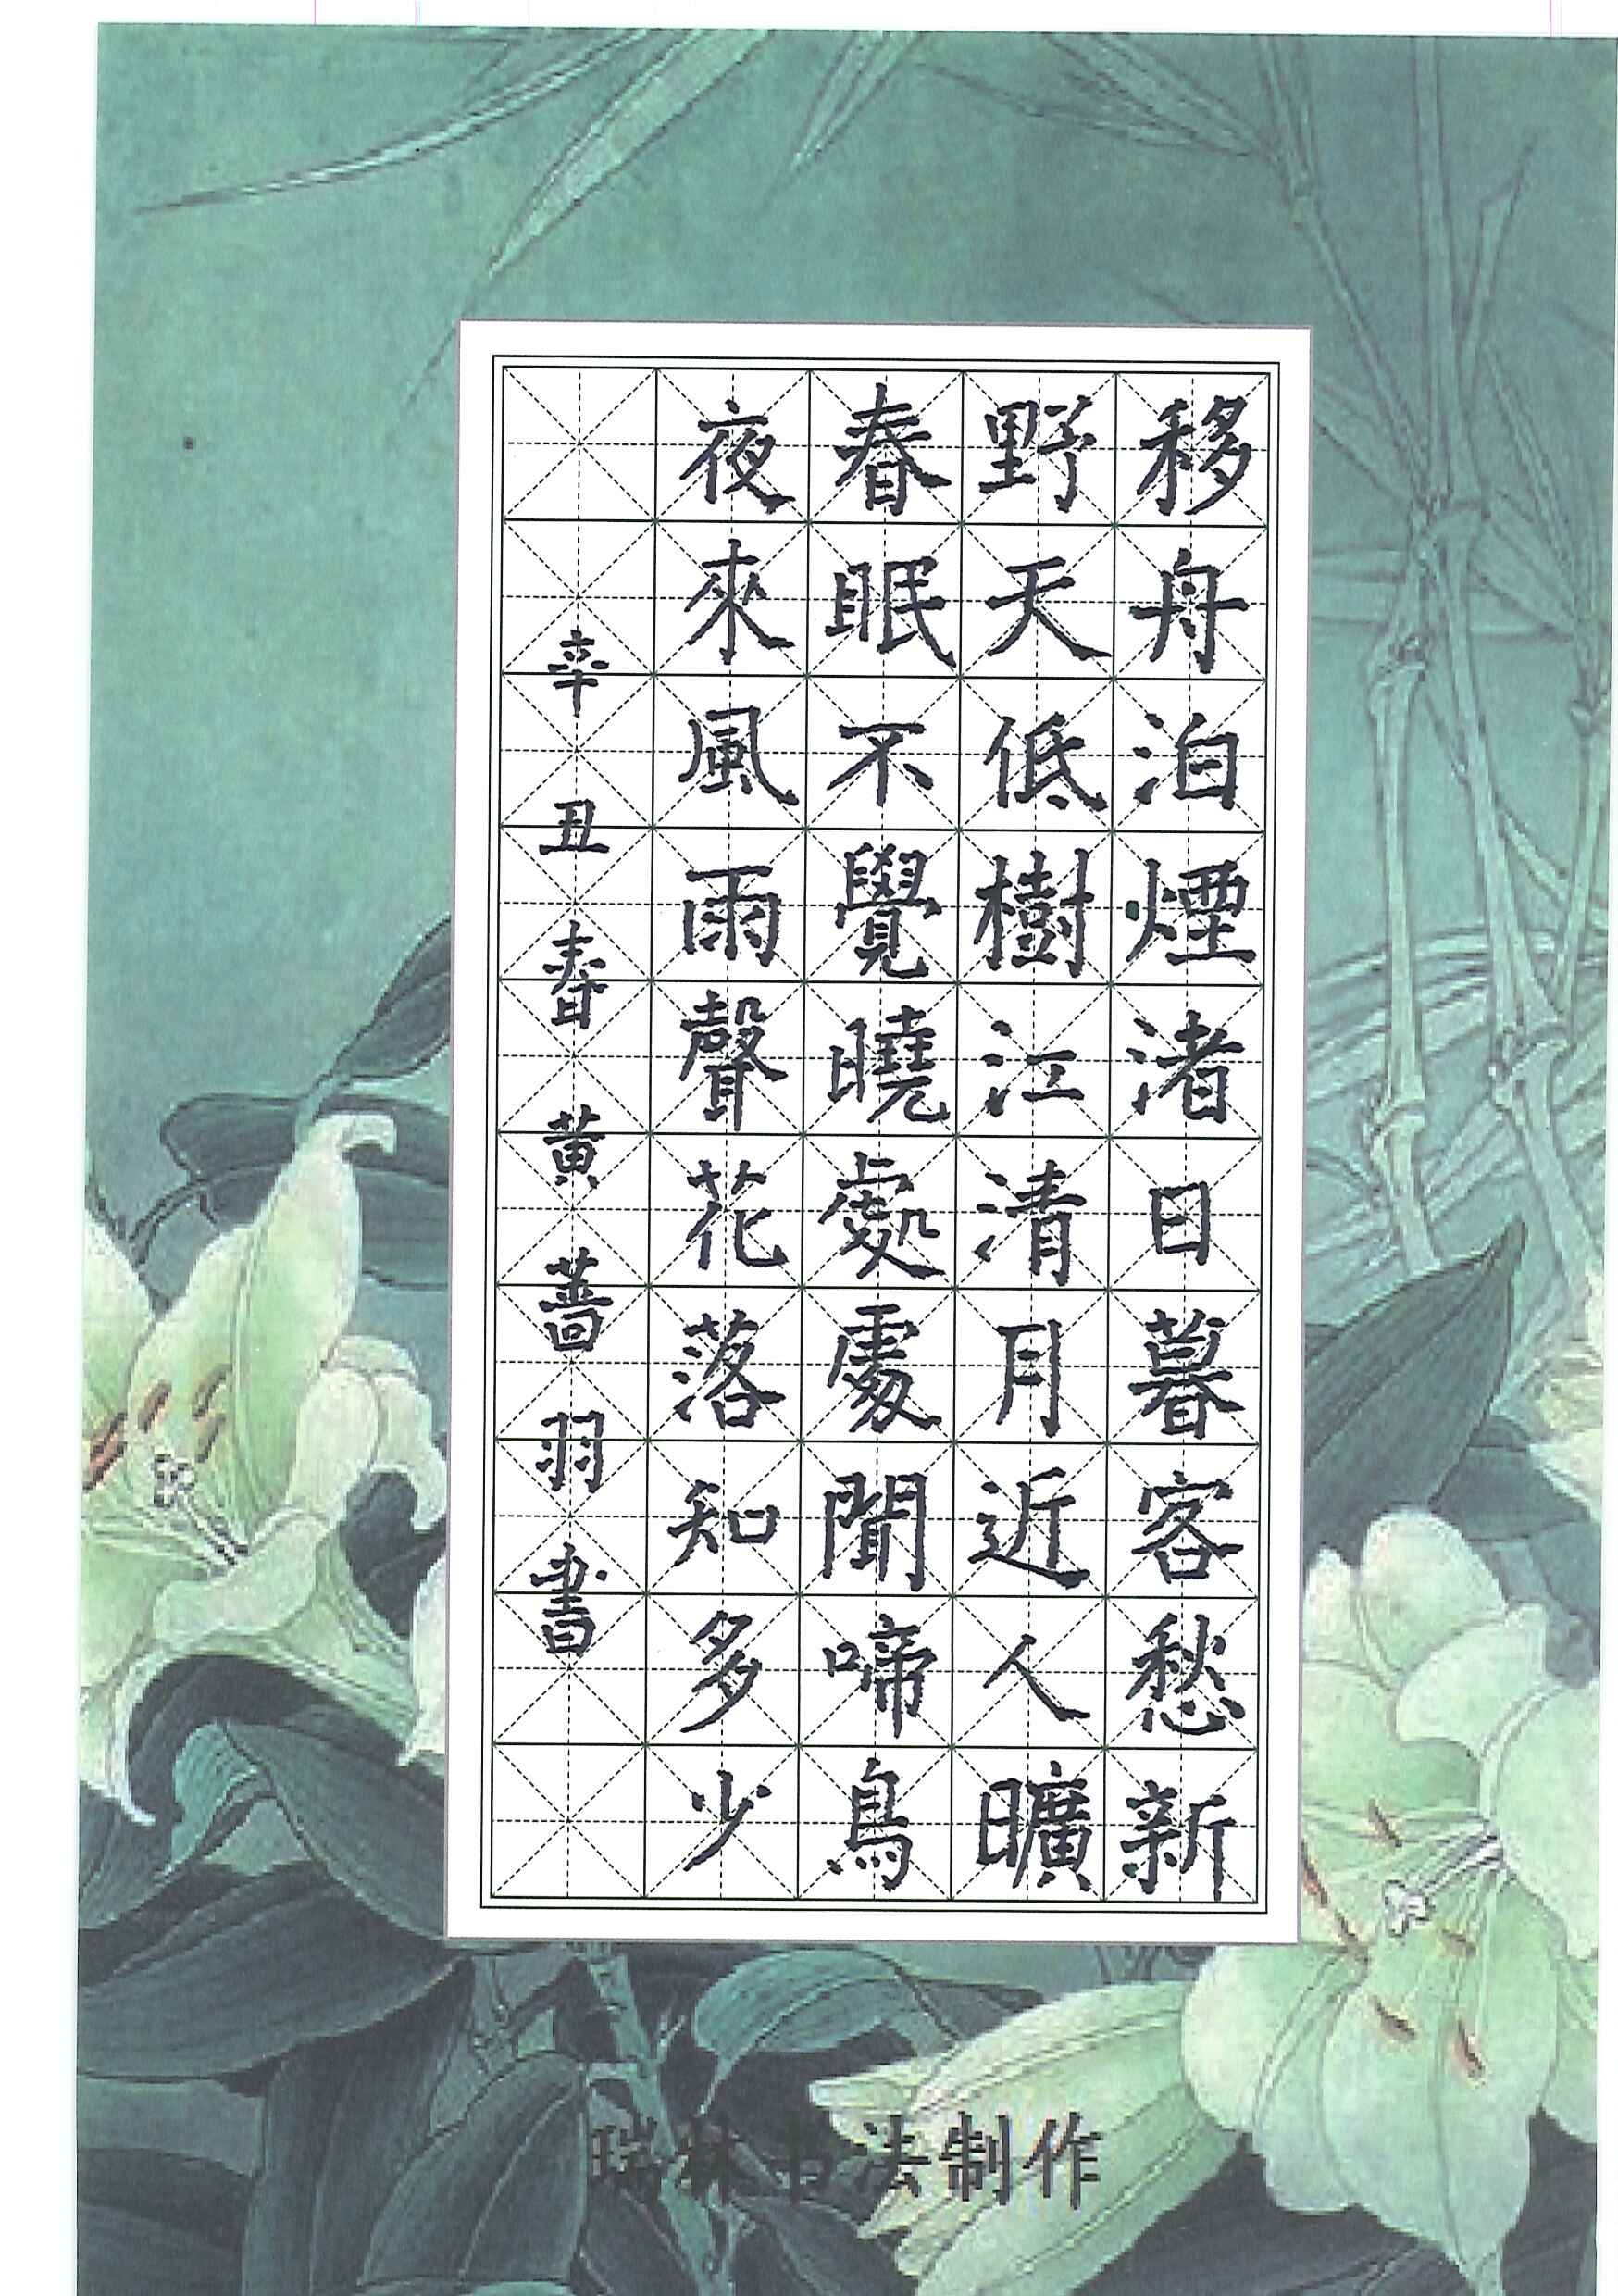 移舟泊煙渚日暮客愁新
野天低樹江清月近人曠
春眠不覺曉處處聞啼鳥
夜來風雨聲花落知多少
辛丑春黄蔷羽書
瑞林书法制作